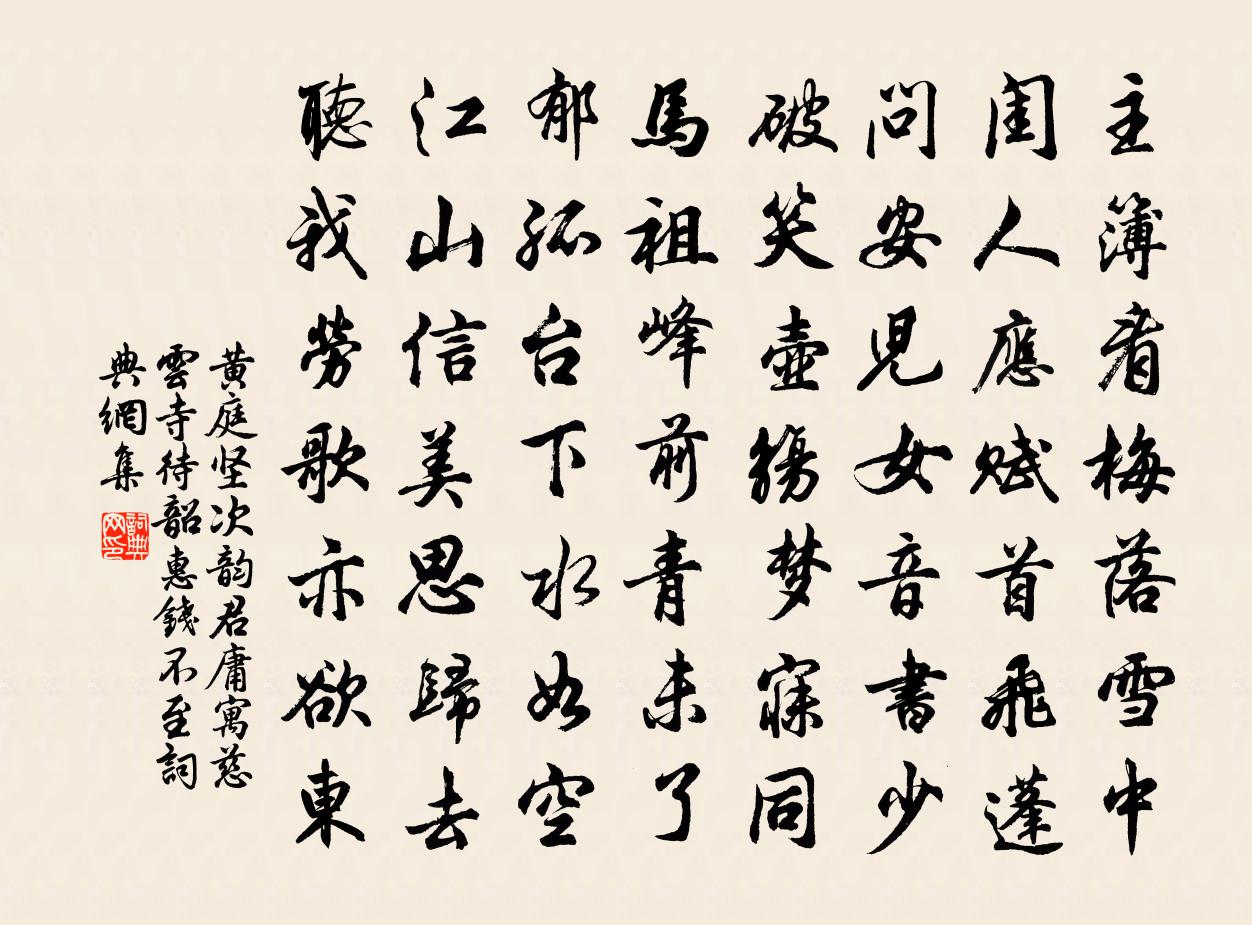 主簿看梅落雪中
閨人應賦首飛蓬
問安児女音書少
破笑壺觴梦寐同
馬祖峰前青未了
郁孤台下水如空
江山信美思歸去
聽我勞歌亦欲東
黄庭坚次韵君庸寓慈
雲寺待韶惠錢不至詞
典網集
詞典
网印